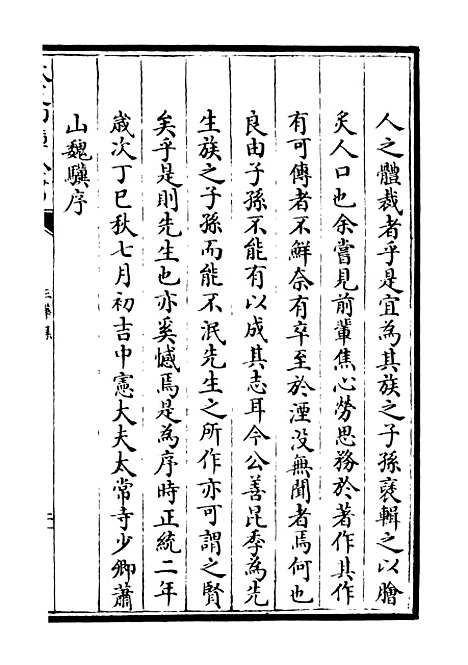 人之體裁者乎是宜為其族之子孫裒輯之以膾
炙人口也余嘗見前輩焦心勞思務於著作其作
有可傳者不鮮奈有卒至於湮没無聞者焉何也
良由子孫不能有以成其志耳今公善昆季為先
生族之子孫而能不泯先生之所作亦可謂之賢
矣乎是則先生也亦奚憾焉是為序時正統二年
歲次丁巳秋七月初吉中憲大夫太常寺少卿蕭
山魏驥序
三華集